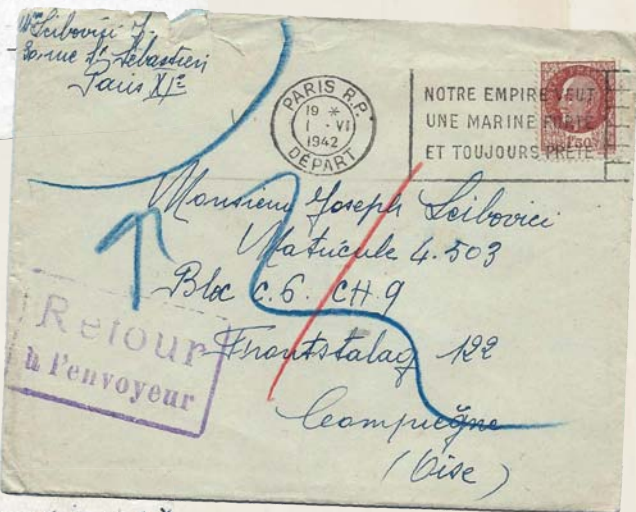 Mme Leibovici J.
30 rue St Sébastien
Paris XIe
PARIS R.P.
19 *
1 - VI
1942
DÉPART
NOTRE EMPIRE VEUT
UNE MARINE FORTE
ET TOUJOURS PRÊTE
1F50
Monsieur Joseph Leibovici
Matricule 4.503
Bloc C.6. CH.9
Frontstalag 122
Compiègne
(Oise)
Retour
à l'envoyeur